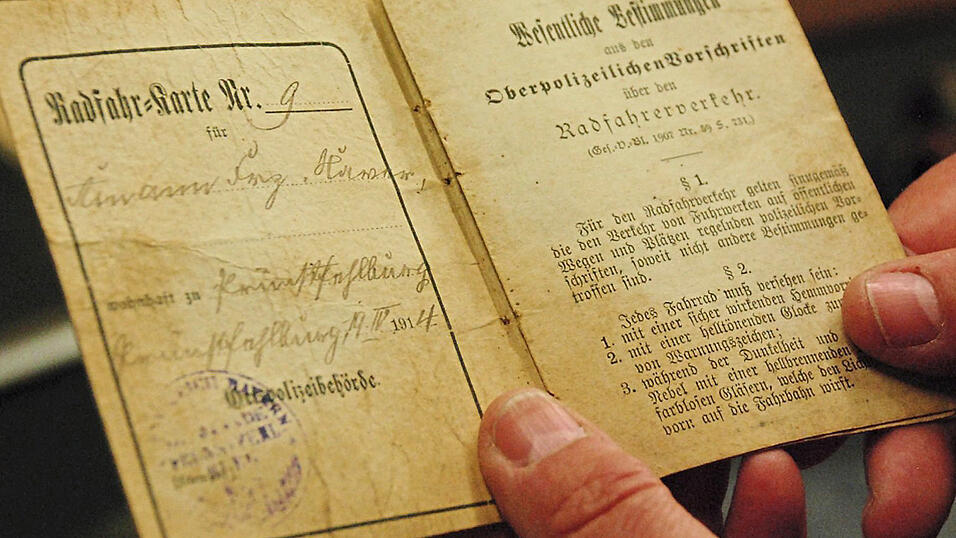 Radfahr=Karte Nr. 9
für
Amann Frz. Xaver,
wohnhaft zu
19. IV 1914
Ortspolizeibehörde.
Wesentliche Bestimmungen
aus den
Oberpolizeilichen Vorschriften
über den
Radfahrerverkehr.
(Ges.=V.=Bl. 1907 Nr. 49 S. 231.)
§ 1.
Für den Radfahrverkehr gelten sinngemäß
die den Verkehr von Fuhrwerken auf öffentlichen
Wegen und Plätzen regelnden polizeilichen Vor-
schriften, soweit nicht andere Bestimmungen ge-
troffen sind.
§ 2.
Jedes Fahrrad muß versehen sein:
1. mit einer sicher wirkenden
2. mit einer helltönenden Glocke
von Warnungszeichen;
3. während der Dunkelheit
Nebel mit einer hellbrennenden
farblosen Gläsern, welche den
vorn auf die Fahrbahn wirft.